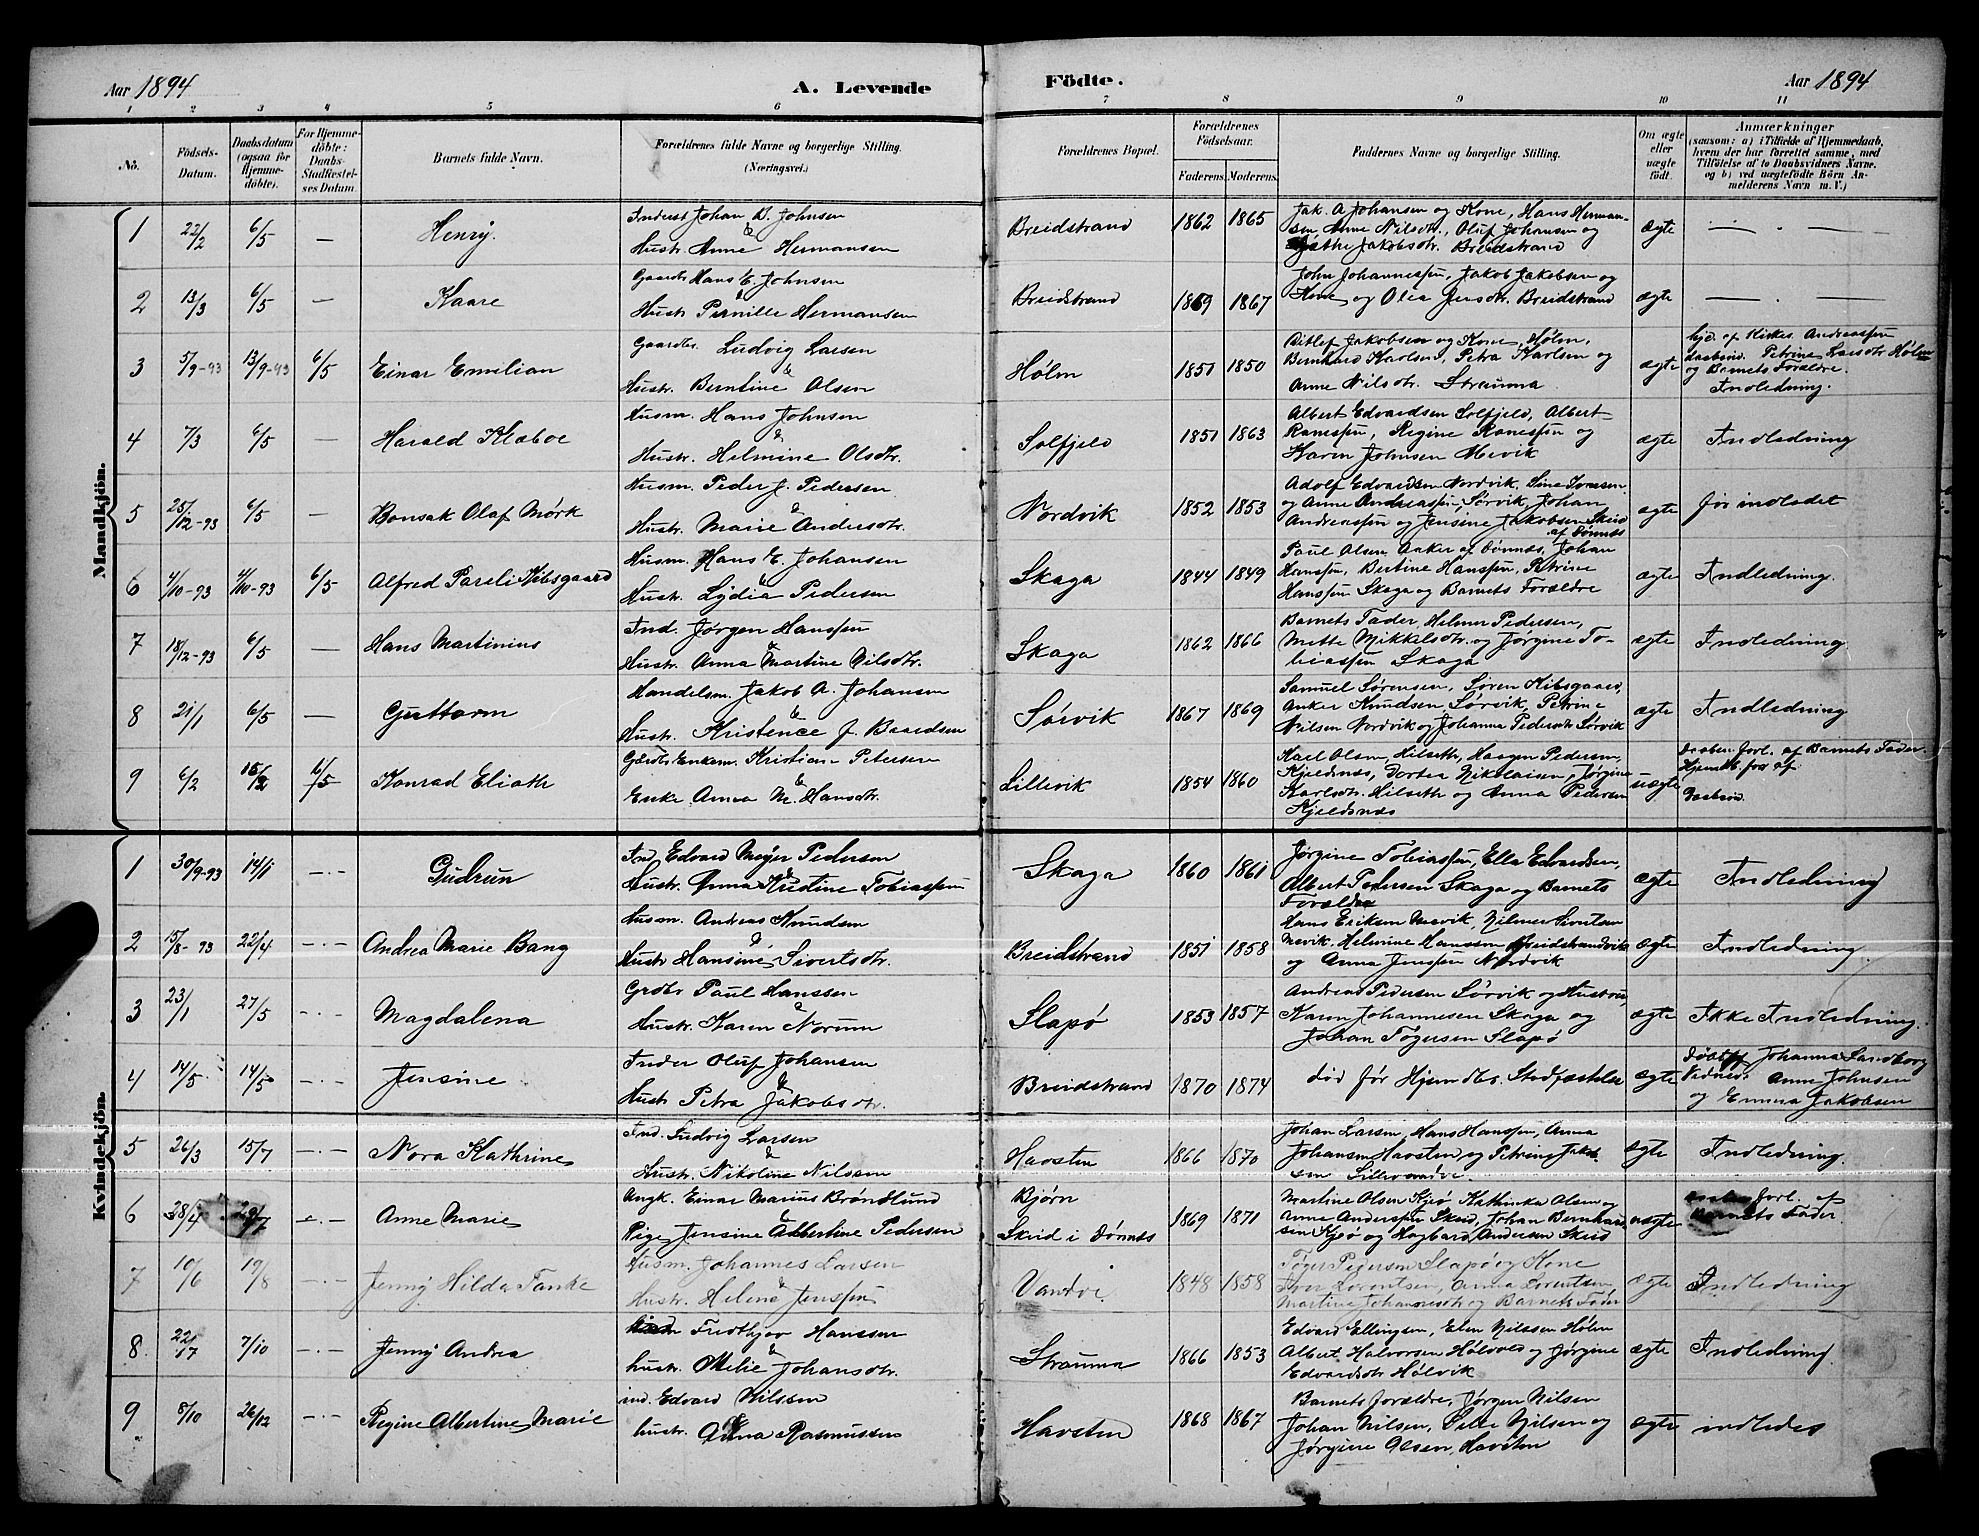 Aar 1894
A. Levende
Födte.
Aar 1894
1 2 3 4 5 6 7 8 9 10 11
No.
Födsels-
Datum.
Daabsdatum
(ogsaa for
Hjemme-
döbte).
For Hjemme-
döbte:
Daabs-
Stadfæstel-
ses Datum.
Barnets fulde Navn.
Forældrenes fulde Navne og borgerlige Stilling.
(Næringsvei.)
Forældrenes Bopæl.
Forældrenes
Födselsaar.
Faderens. Moderens.
Faddernes Navne og borgerlige Stilling.
Om ægte
eller
uægte
födt.
Anmærkninger
(saasom: a) i Tilfælde af Hjemmedaab,
hvem der har forrettet samme, med
Tilföielse af to Daabsvidners Navne,
og b) ved uægtefödte Börn An-
melderens Navn m. V.)
Mandkjön.
1 22/2 6/5 — Henry.
Inderst Johan B. Johnsen
&
Hustr. Anne Hermansen
Breidstrand 1862 1865
Jak. A Johansen og Kone, Hans Herman-
sen, Anne Nilsdtr., Oluf Johansen og
Jakobsdtr. Breidstrand
ægte — . —
2 13/3 6/5 — Kaare
Gaardbr. Hans E. Johnsen
&
Hustr. Pernille Hermansen
Breidstrand 1869 1867
John Johannessen, Jakob Jakobsen og
Kone og Olea Jensdtr. Breidstrand
ægte — . —
3 5/9-93 13/9-93 6/5 Einar Emilian
Gaardbr. Ludvig Larsen
&
Hustr. Berntine Olsen
Hólm 1851 1850
Ditlef Jakobsen og Kone, Hólm,
Bernhard Karlsen, Petra Karlsen og
Anne Nilsdtr. Strauma
ægte
hjd. af Kirkes. Andreassen
daabsvid. Petrine Larsdtr Hólm
og Barnets Forældre.
Indledning.
4 7/3 6/5 — Harald Klæboe
Husm. Hans Johnsen
&
Hustr. Helmine Olsdtr.
Solfjeld 1851 1863
Albert Edvardsen Solfjeld, Albert
Ranessen, Regine Ranessen og
Karen Johnsen Mevik
ægte Indledning
5 25/12-93 6/5 — Bonsak Olaf Mörk
Husm. Peder J. Pedersen
&
Hustr. Marie Andersdtr.
Nordvik 1852 1853
Adolf Edvardsen Nordvik,
og Anne Andreassen, Sørvik, Johan
Andreassen og Jensine Jakobsen Skeid
af Dónnes
ægte før indledet
6 4/10-93 4/10-93 6/5 Alfred Pareli Kibsgaard
Husm. Hans E. Johansen
&
Hustr. Lydia Pedersen
Skaga 1844 1849
Paul Olsen, Anker af Dónnes, Johan
Hanssen, Bertine Hanssen, Petrine
Hanssen Skaga og Barnets Forældre
ægte Indledning.
7 18/12-93 6/5 — Hans Martinius
Ind. Jørgen Hanssen
&
Hustr. Anna Martine Nilsdtr.
Skaga 1862 1866
Barnets Fader, Helmer Pedersen,
Mette Mikkelsdtr. og Jørgine To-
biassen Skaga
ægte Indledning
8 21/1 6/5 — Guttorm
Handelsm. Jakob A. Johansen
&
Hustr. Kristence J. Baardsen
Sórvik 1867 1869
Samuel Sørensen, Søren Kibsgaard,
Anker Knudsen Sørvik, Petrine
Nilsen Nordvik og Johanna Pedersdtr Sórvik
ægte Indledning
9 6/2 6/5 Konrad Eliath
Gårdbr Enkem. Kristian Petersen
&
Enke Anna M. Hansdtr.
Lillevik 1854 1860
Karl Olsen, Hilseth, Haagen Pedersen,
Kjeldnæs, Dortea Nikolaisen, Jørgine
Karlsdtr. Hilseth og Anna Pedersen
Kjeldsnæs
uægte
Daaben forl. af Barnets Fader.
Kvindekjön.
1 30/9-93 14/1 —.— Gudrun
Ind Edvard Meyer Pedersen
&
Hustr. Anna Kristine Tobiassen
Skaga 1860 1861
Jørgine Tobiassen, Ella Edvardsen,
Albert Pedersen Skaga og Barnets
Forældre
ægte Indledning
2 15/8-93 22/4 —.— Andrea Marie Bang
Husm. Andreas Knudsen
&
Hustr Hansine Sivertsdtr.
Breidstrand 1851 1858
Hans Eriksen Mevik, Hilmer Sivertsen
Mevik, Helmine Hanssen Breidstrandvik
og Anna Jenssen Nordvik
ægte Indledning.
3 23/1 27/5 —.— Magdalena
Grdbr Paul Hanssen
&
Hustr. Karen Norum
Slapø 1853 1857
Andreas Pedersen Sørvik og Hustru,
Karen Johannesen Skaga og
Johan Tøgersen Slapø
ægte Ikke Indledning.
4 14/5 14/5 —.— Jensine
Inder Oluf Johansen
&
Hustr Petra Jakobsdtr.
Breidstrand 1870 1874
død før Hjemdbs. Stadfæstelse
ægte
Johanna Sandborg
Vidner: Anne Johnsen
og Emma Jakobsen
5 26/3 15/7 —.— Nora Kathrine
Ind. Ludvig Larsen
&
Hustr. Nikoline Nilsen
Havsten 1866 1870
Johan Larsen, Hans Hanssen, Anna
Johansen Havsten og Petrine Jakob-
sen
ægte Indledning.
6 28/4 —.— Anne Marie
Ungk. Einar Marius Brónlund
&
Pige Jensine Albertine Pedersen
Bjørn
Skeid i Dónnes 1869 1871
Martine Olsen Kjeø Kathinka Olsen og
Anne Anderssen Skeid, Johan Bernhard-
sen Kjeø og Hagbard Andersen Skeid
uægte
forl. af
Barnets Fader.
7 10/6 19/8 —.— Jenny Hilda Tanke
Husm. Johannes Larsen
&
Hustr. Helene Jenssen
Vandve. 1848 1858
Tøger Pedersen Slapø og Kone
Iver Lorentsen, Anna Lorentsen
Martine Johannesdtr og Barnets Fader
ægte Indledning
8. 22/7 7/10 —.— Jenny Andrea
Fredthjov Hanssen
&
hustr. Melie Johansdtr.
Strauma 1866 1853
Edvard Ellingsen, Elen Nilssen Hólm
Albert Halvorsen Hólvos og Jørgine
Edvardsdtr Hólvik
ægte Indledning.
9 8/10 26/12 —.— Regine Albertine Marie
ind. Edvard Nilssen
&
hustr. Anna Rasmussen
Havsten 1868 1867
Barnets forældre, Jørgen Nilsen
Johan Nilsen, Nilsen og
Jørgine Olsen, Havsten
ægte indledes